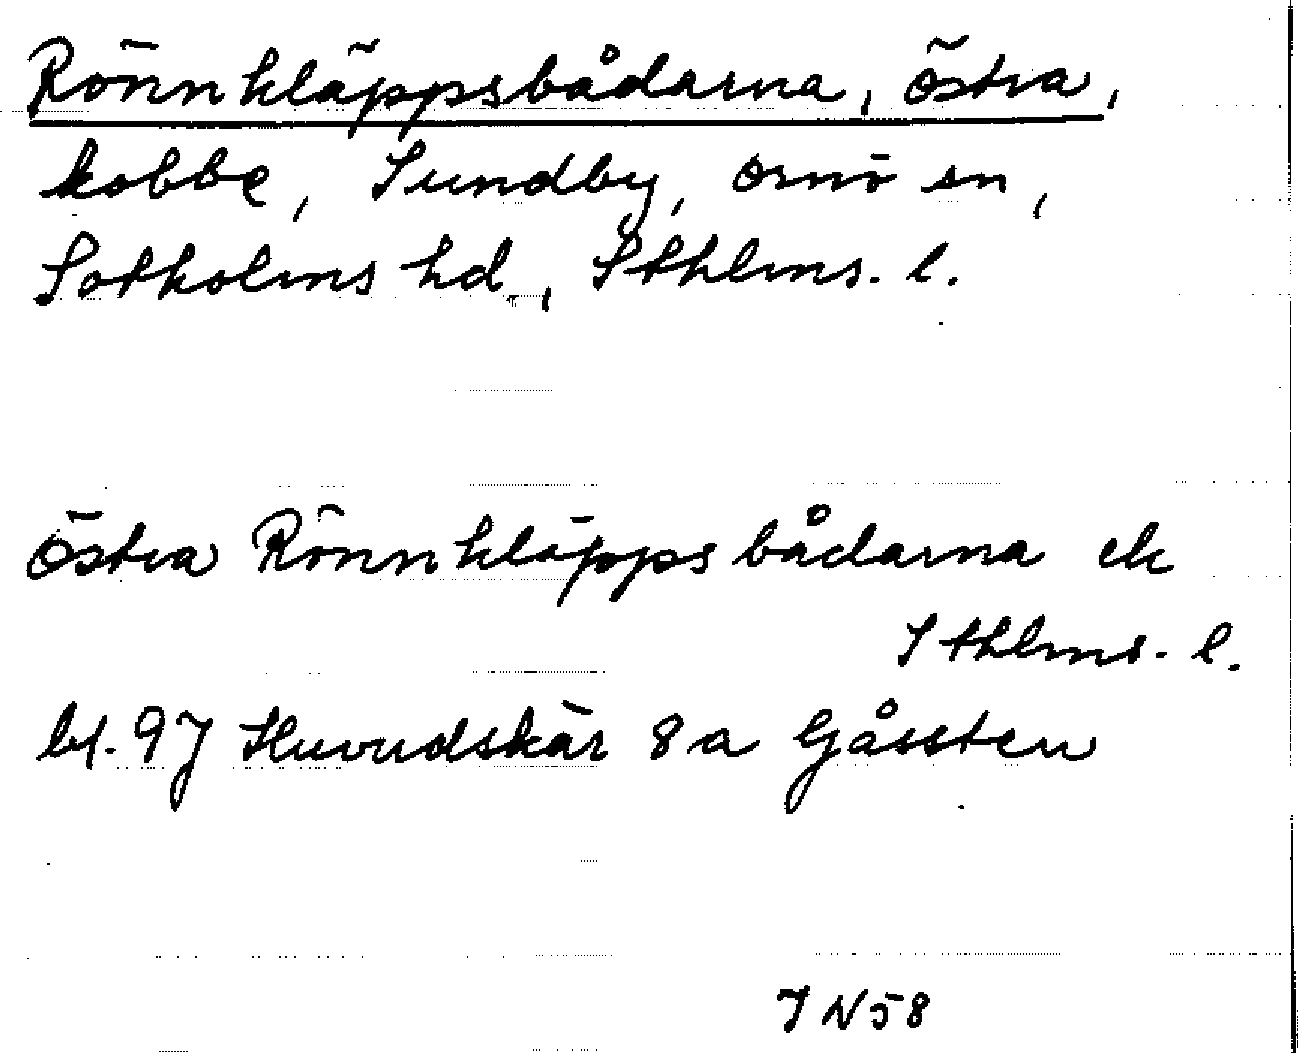 Rönnkläppsbådarna, Östra,
kobbe, Sundby, Ornö sn,
Sotholms hd., Sthlms. l.
Östra Rönnkläppsbådarna ek
Sthlms. l.
bl. 97 Huvudskär 8 a Gåssten
JN58